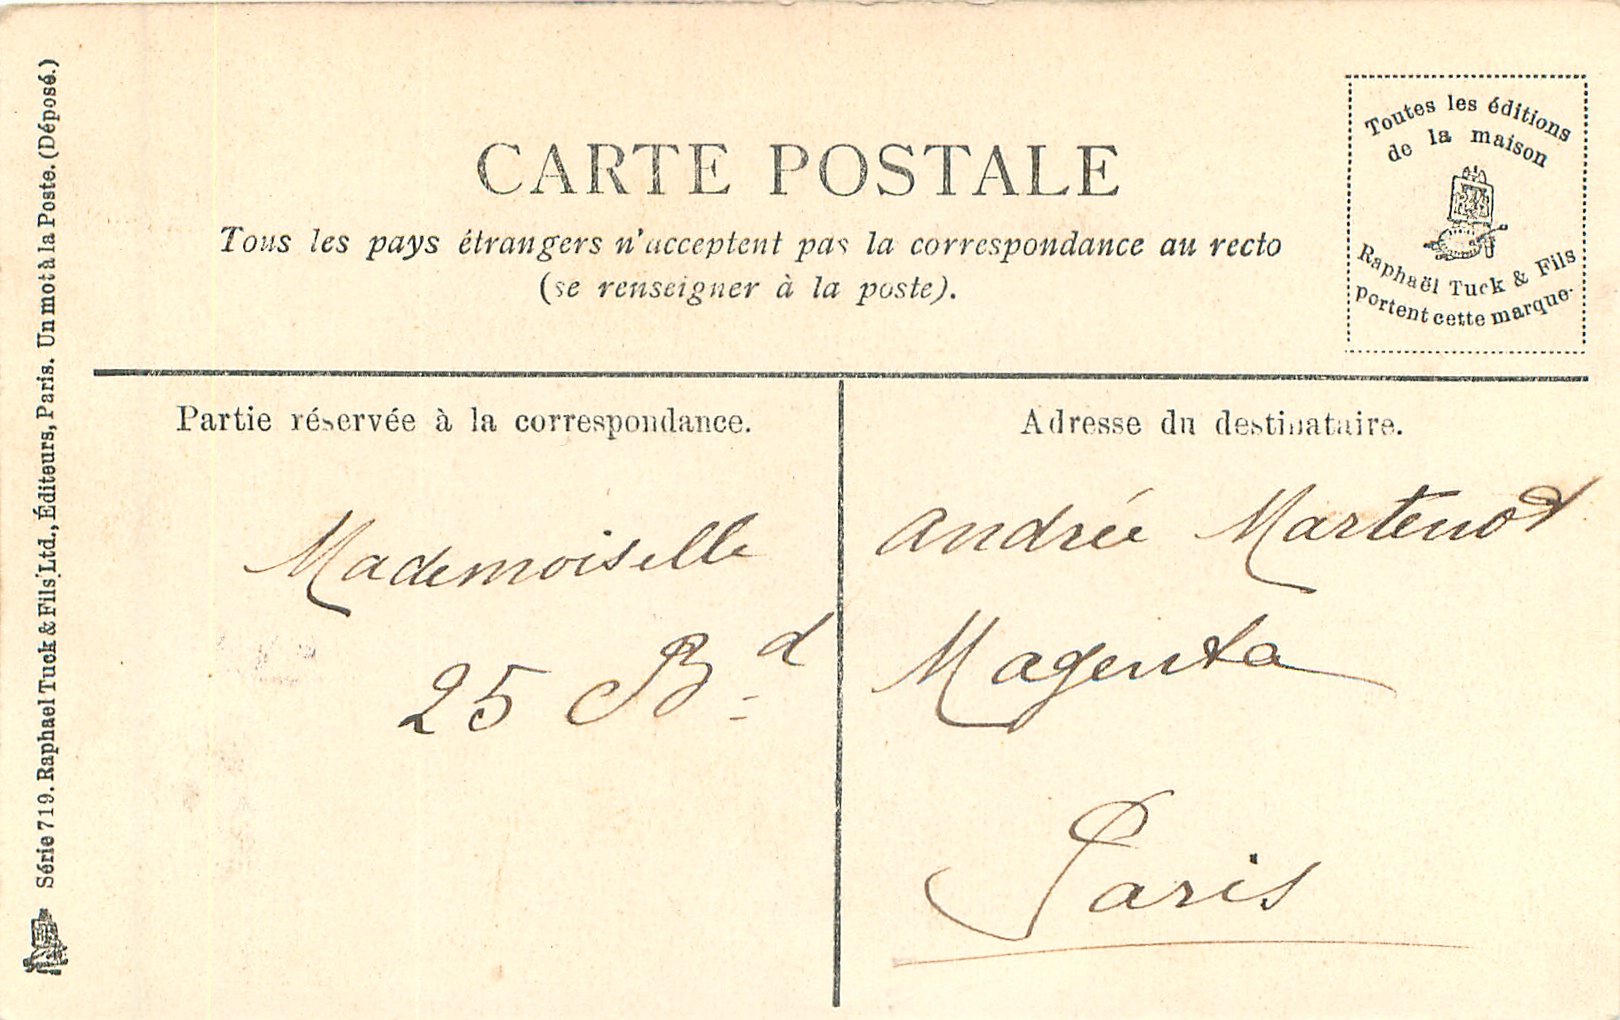 Série 719. Raphael Tuck & Fils, Ltd., Éditeurs, Paris. Un mot à la Poste. (Déposé.)
CARTE POSTALE
Tous les pays étrangers n'acceptent pas la correspondance au recto
(se renseigner à la poste).
Toutes les éditions
de la maison
Raphaël Tuck & Fils
portent cette marque.
Partie réservée à la correspondance.
Adresse du destinataire.
Mademoiselle Andrée Martenot
25 Bd Magenta
Paris